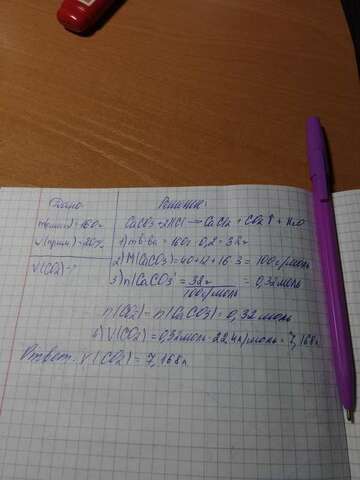 Дано:
Решение:
m(
) = 160г
w(прим) = 20%
V(CO2) - ?
CaCO3 + 2HCl → CaCl2 + CO2↑ + H2O
1) m в-ва = 160г · 0,2 = 32г
2) M(CaCO3) = 40 + 12 + 16·3 = 100г/моль
3) n(CaCO3) = 32г / 100г/моль = 0,32 моль
n(CO2) = n(CaCO3) = 0,32 моль
V(CO2) = 0,32моль · 22,4л/моль = 7,168л
Ответ: V(CO2) = 7,168л